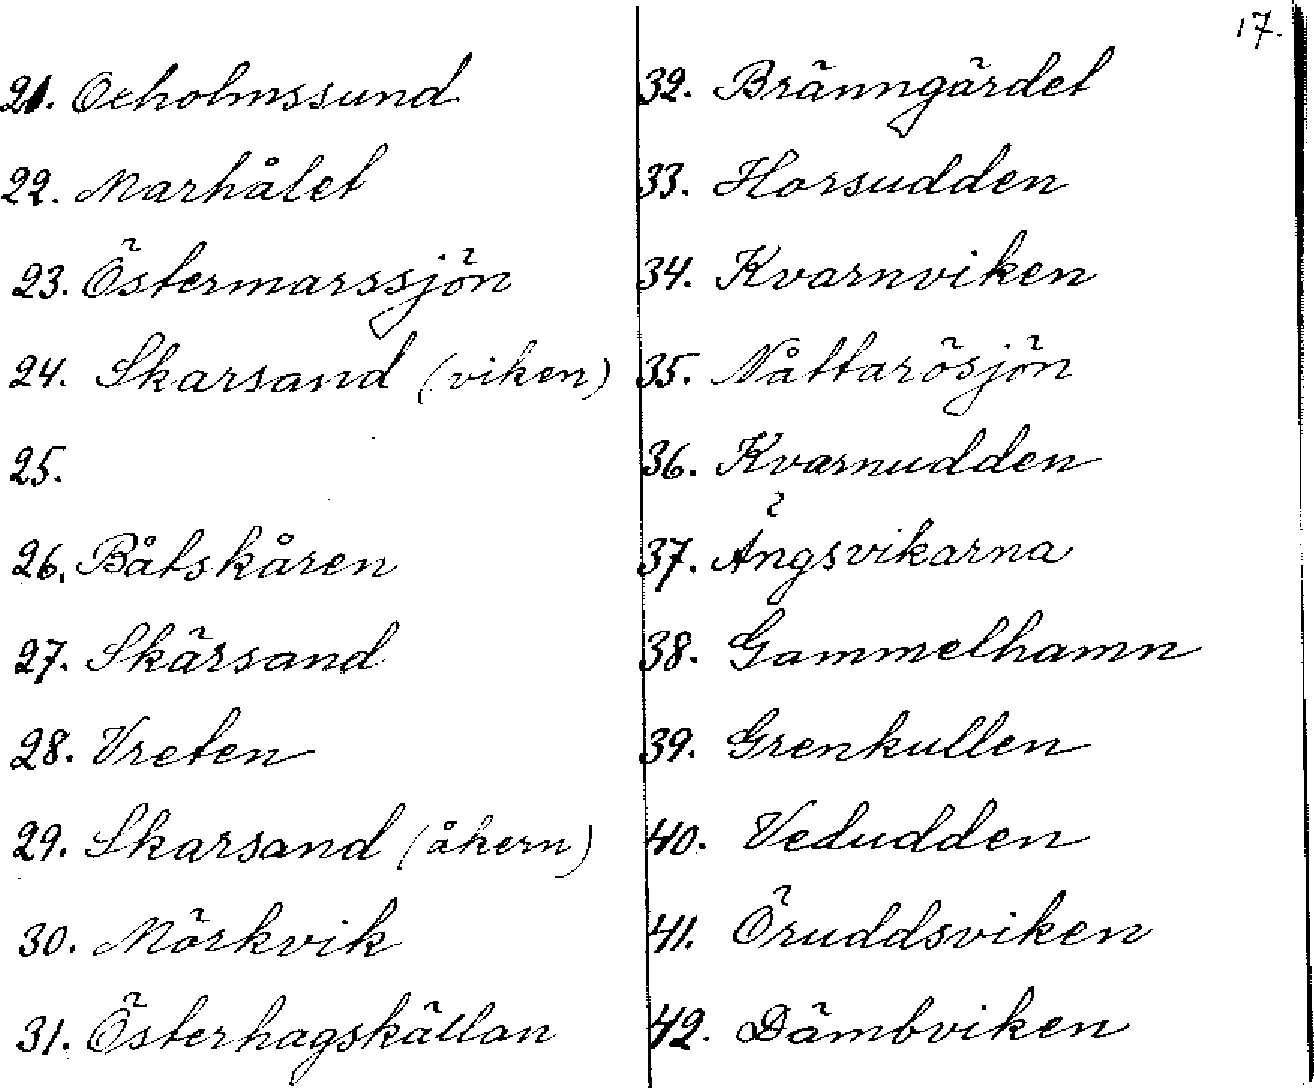 17.
21. Ocholmssund
22. Marhålet
23. Östermarssjön
24. Skarsand (viken)
25.
26. Båtskåren
27. Skärsand
28. Vreten
29. Skarsand (åkern)
30. Mörkvik
31. Österhagskällan
32. Bränngärdet
33. Horsudden
34. Kvarnviken
35. Nåttarösjön
36. Kvarnudden
37. Ängsvikarna
38. Gammelhamn
39. Grenkullen
40. Vedudden
41. Öruddsviken
42. Dämbviken